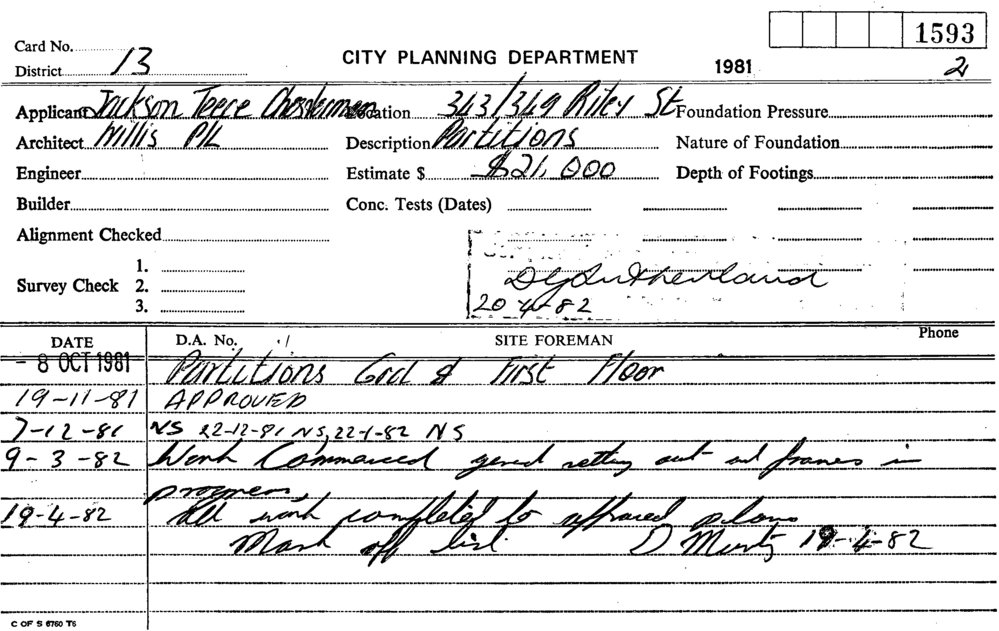 1593
Card No. CITY PLANNING DEPARTMENT
District 13 1981 2
Applicant Jackson Teece Chesterman Location 343/349 Riley St Foundation Pressure
Architect Willis P/L Description Partitions Nature of Foundation
Engineer Estimate $ $21,000 Depth of Footings
Builder Conc. Tests (Dates)
Alignment Checked
1.
Survey Check 2. Sutherland
3. 20 4-82
DATE D.A. No. SITE FOREMAN Phone
- 8 OCT 1981 Partitions Grd & First Floor
19-11-81 APPROVED
7-12-81 NS 22-12-81 NS, 22-1-82 NS
9-3-82 Work Commenced setting out frames in
progress,
19-4-82 All work completed to approved plans
Mark off list. D 19-4-82
C OF S 6760 T6